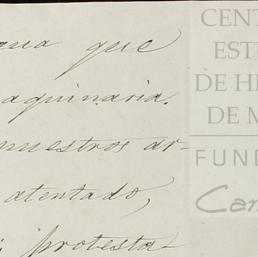 gua que
aquinaria.
nuestros ar-
atentado,
protesta-
CENT
ESTU
DE HI
DE M
FUND
Car